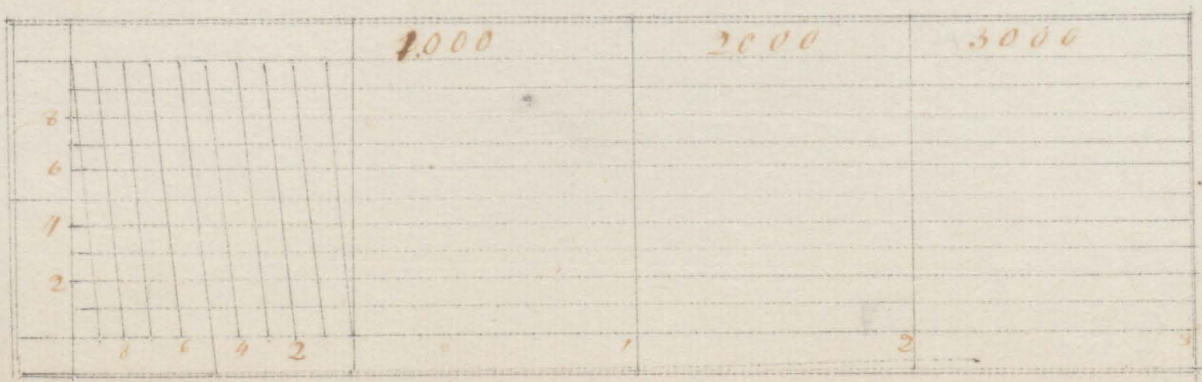 1000 2000 3000
8
6
4
2
8 6 4 2 0 1 2 3